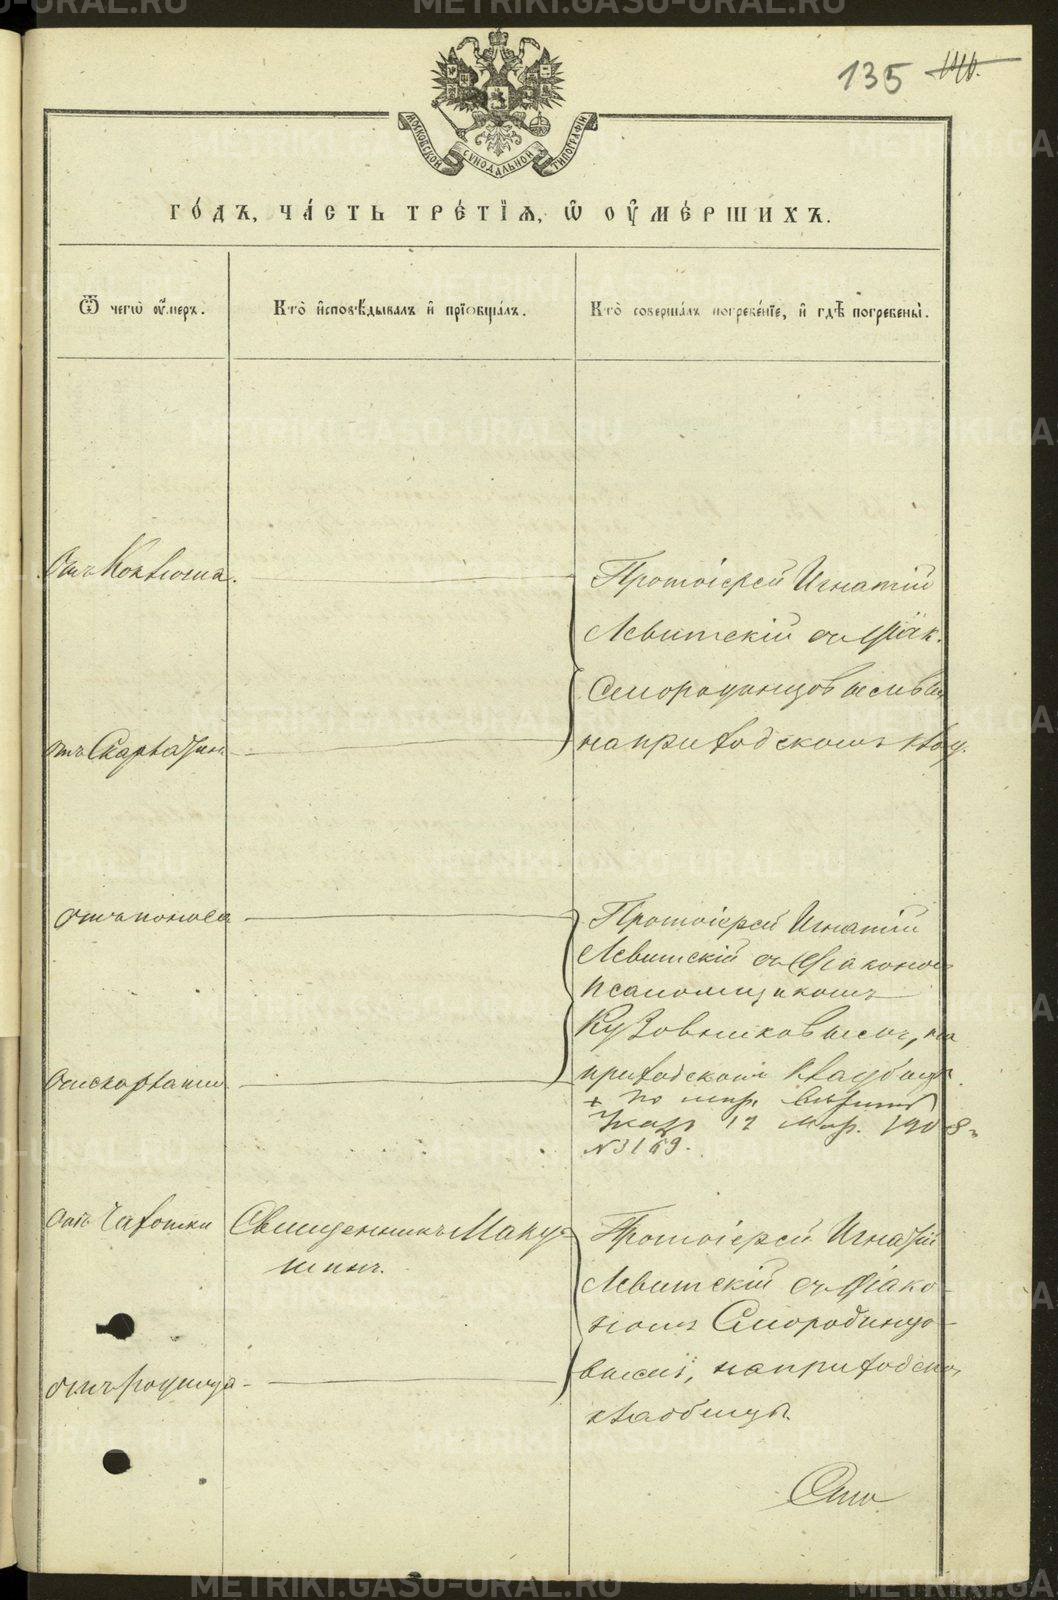 135 140.
МОСКОВСКОЙ СѴНОДАЛЬНОЙ ТИПОГРАФІИ
ГО́ДЪ, ЧА́СТЬ ТРЕ́ТІѦ, Ѽ ОУ҆МЕ́РШИХЪ.
Ѿ чегѡ̀ оу҆́меръ.
Кто̀ и҆сповѣ́дывалъ и҆ прїѡбща́лъ.
Кто̀ соверша́лъ погребе́нїе, и҆ гдѣ̀ погребены̀.
Отъ Коклюша.
Протоіерей Игнатій
Левитскій съ діак.
Смородинцовымъ
на приходскомъ клад.
отъ Скарлатин.
отъ поноса
Протоіерей Игнатій
Левитскій съ діакономъ
псаломщикомъ
Кузовниковымъ, на
приходскомъ кладбищѣ.
От скарлатин
12 Мар. 1908 г.
№ 3169.
Отъ Чахотки
Священникъ Маку
шинъ.
Протоіерей Игнатій
Левитскій съ діако-
номъ Смородинцо-
вымъ, на приходском
кладбищѣ.
отъ родимца
METRIKI.GASO-URAL.RU